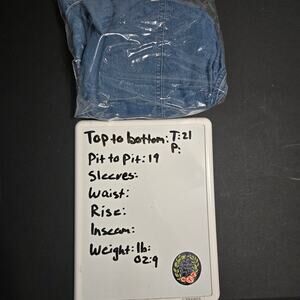 Top to bottom: T:21
P:
Pit to Pit: 19
Sleeves:
Waist:
Rise:
Inseam:
Weight: lb:
oz:9